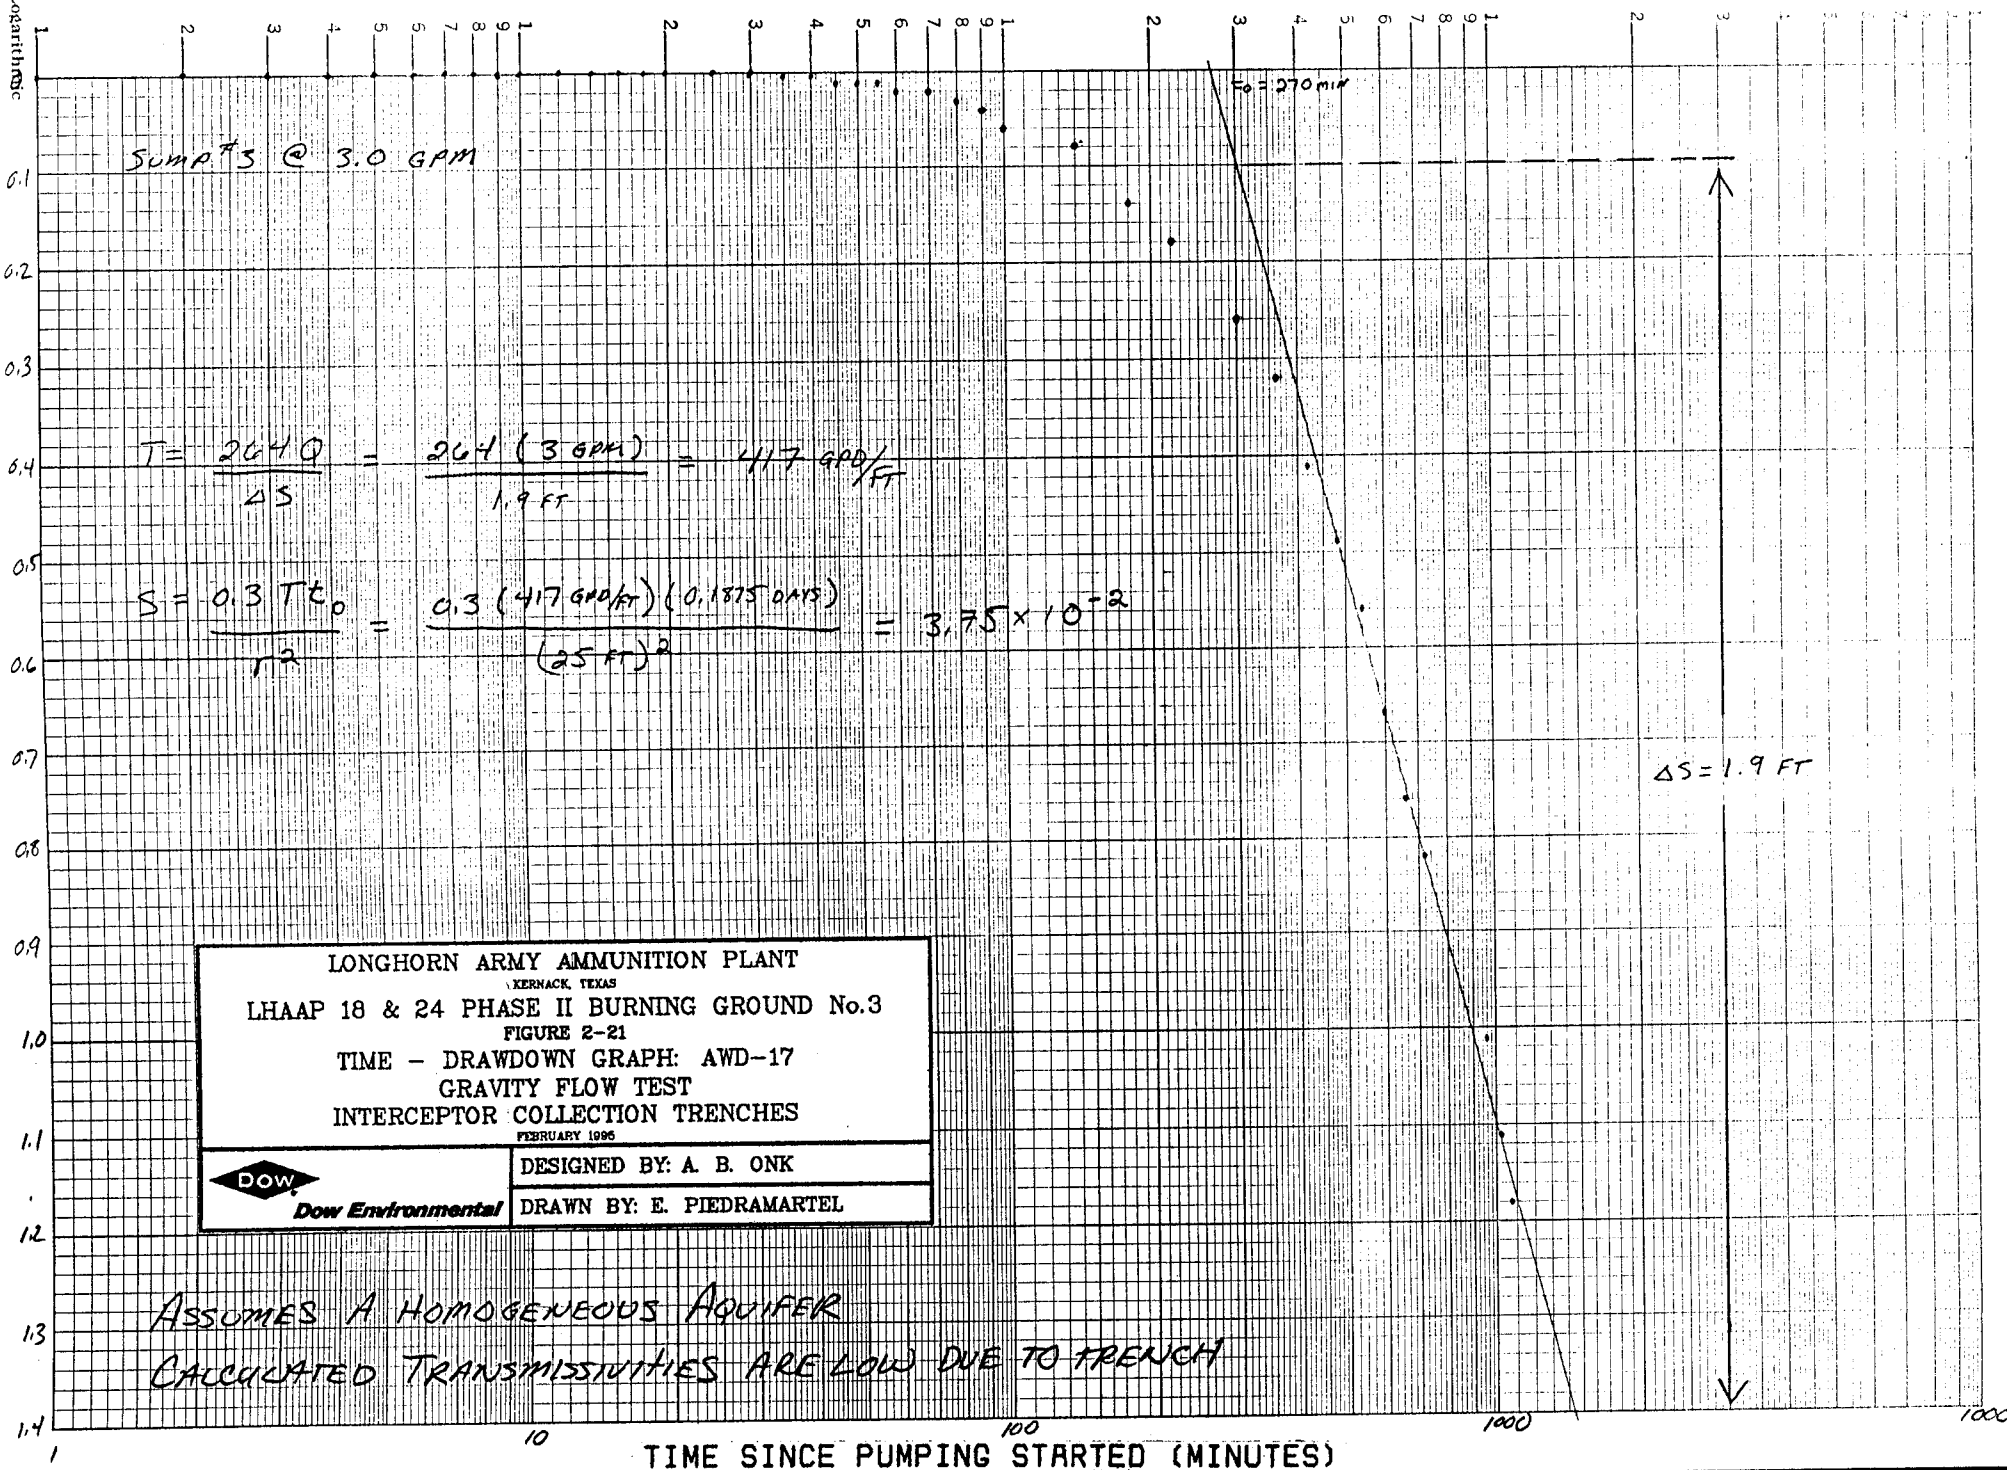 Logarithmic
1 2 3 4 5 6 7 8 9 1 2 3 4 5 6 7 8 9 1 2 3 4 5 6 7 8 9 1 2 3
t₀ = 270 min
Sump #3 @ 3.0 GPM
0.1
0.2
0.3
T = 264 Q / ΔS = 264 (3 GPM) / 1.9 FT = 417 GPD/FT
0.4
0.5
S = 0.3 T t₀ / r² = 0.3 (417 GPD/FT) (0.1875 DAYS) / (25 FT)² = 3.75 × 10⁻²
0.6
0.7
ΔS = 1.9 FT
0.8
0.9
LONGHORN ARMY AMMUNITION PLANT
KERNACK, TEXAS
LHAAP 18 & 24 PHASE II BURNING GROUND No.3
FIGURE 2-21
1.0
TIME - DRAWDOWN GRAPH: AWD-17
GRAVITY FLOW TEST
INTERCEPTOR COLLECTION TRENCHES
FEBRUARY 1995
1.1
DOW
Dow Environmental
DESIGNED BY: A. B. ONK
DRAWN BY: E. PIEDRAMARTEL
1.2
ASSUMES A HOMOGENEOUS AQUIFER
1.3
CALCULATED TRANSMISSIVITIES ARE LOW DUE TO TRENCH
1.4
1 10 100 1000 1000
TIME SINCE PUMPING STARTED (MINUTES)